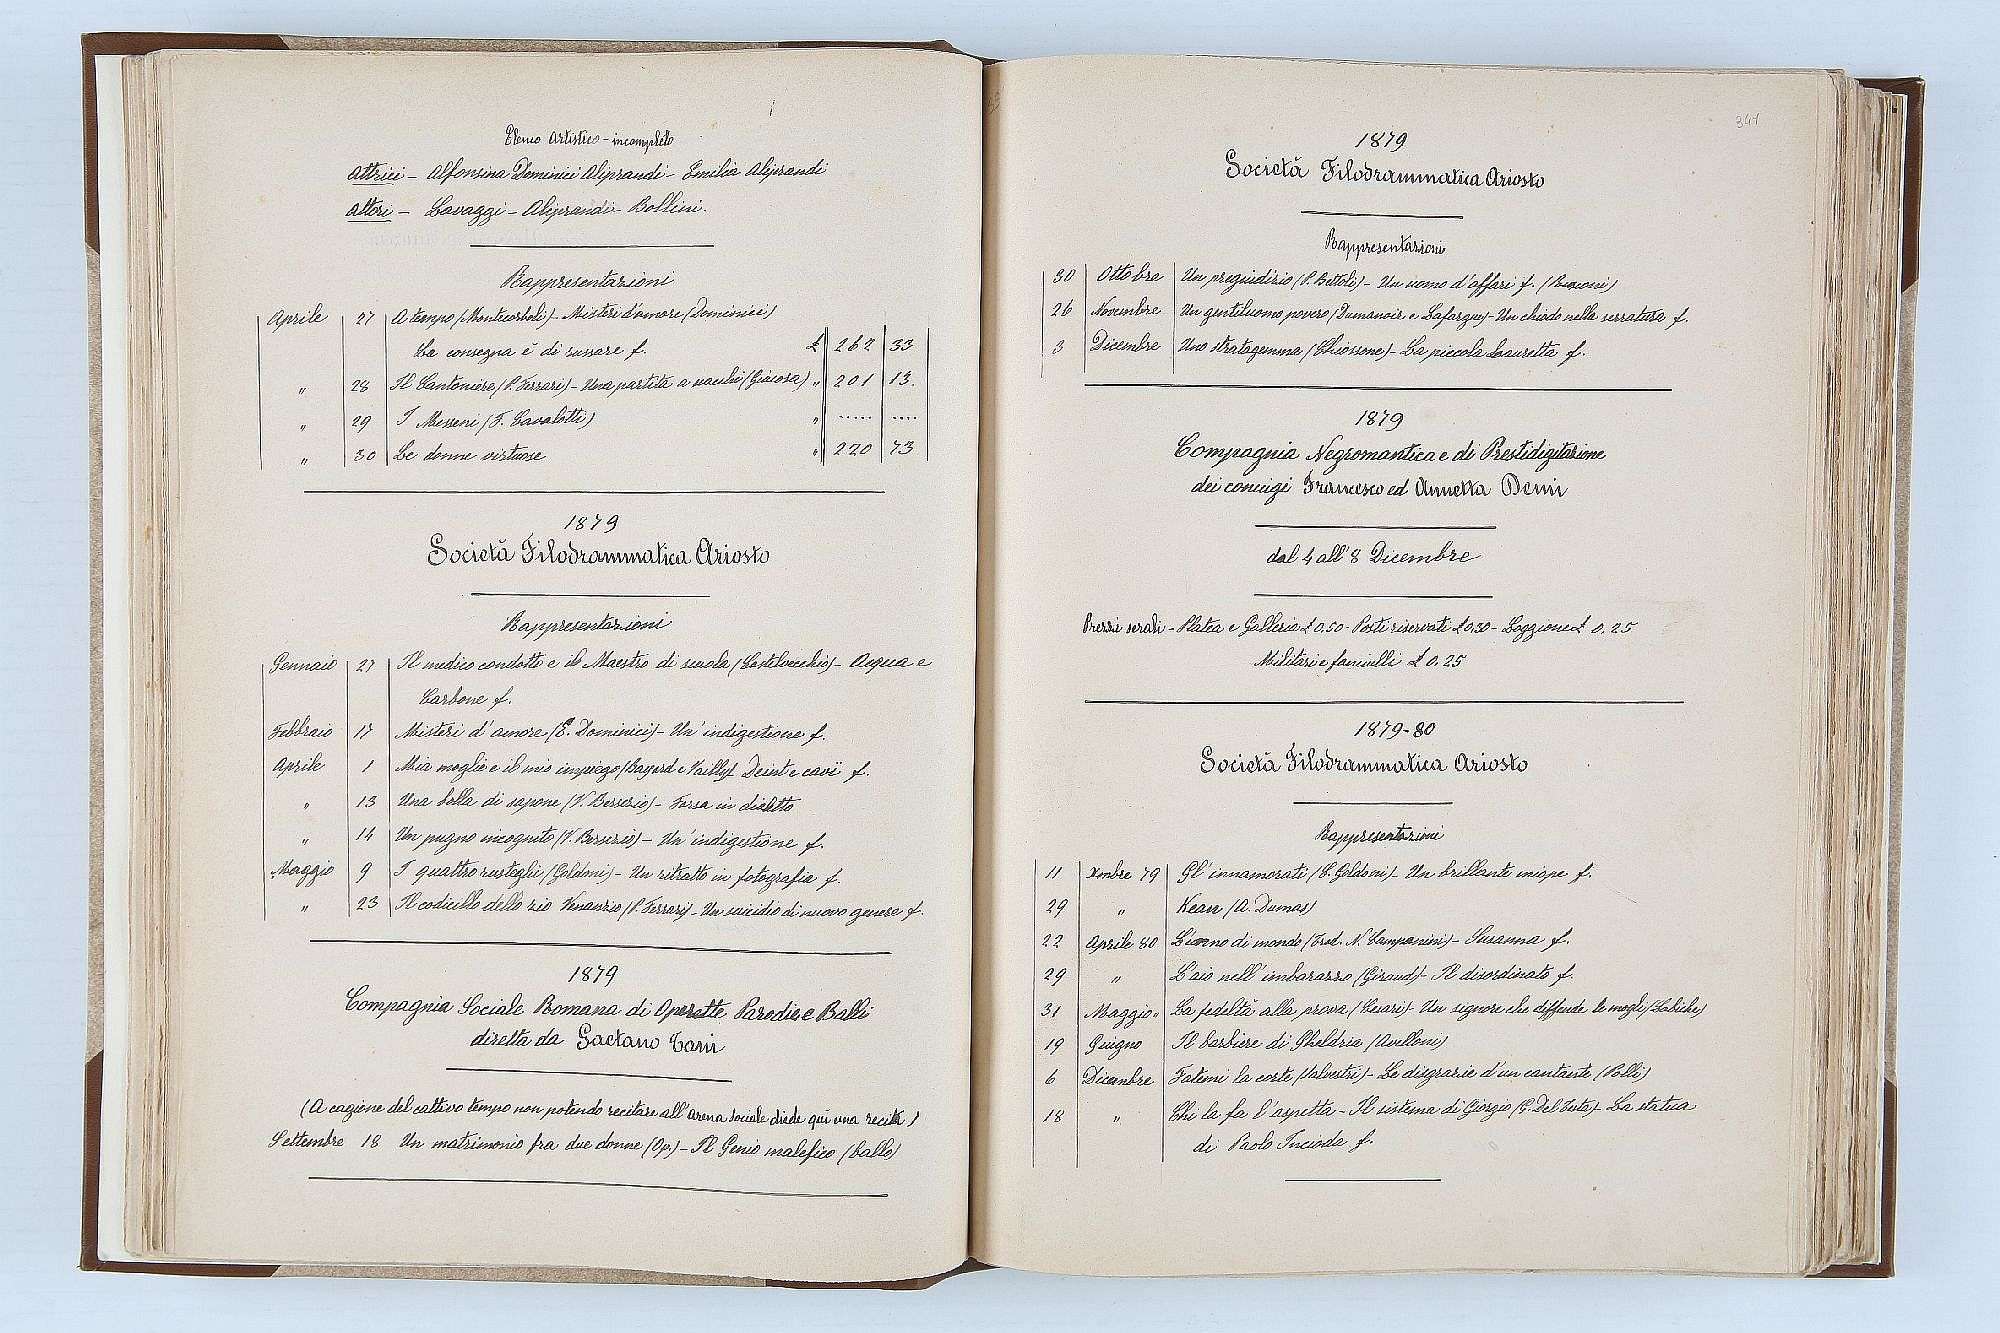 Elenco Artistico - incompleto
Attrici - Alfonsina Dominici Aliprandi - Emilia Aliprandi
Attori - Lavaggi - Aliprandi - Bollini.
Rappresentazioni
Aprile 27 A tempo (Montecorboli) - Misteri d'amore (Dominici)
La consegna è di russare f. £ 262 33
„ 28 Il Cantoniere (P. Ferrari) - Una partita a scacchi (Giacosa) „ 201 13.
„ 29 I Messeni (F. Cavalotti) „ ..... ....
„ 30 Le donne virtuose „ 220 73
1879
Società Filodrammatica Ariosto
Rappresentazioni
Gennaio 27 Il medico condotto e il Maestro di scuola (Castelvecchio) - Acqua e
Carbone f.
Febbraio 17 Misteri d'amore (E. Dominici) - Un'indigestione f.
Aprile 1 Mia moglie e il mio impiego (Bayard e Vailly) f.
„ 13 Una bolla di sapone (V. Bersezio) - Farsa in dialetto
„ 14 Un pugno incognito (V. Bersezio) - Un'indigestione f.
Maggio 9 I quattro rusteghi (Goldoni) - Un ritratto in fotografia f.
„ 23 Il codicillo dello zio Venanzio (P. Ferrari) - Un suicidio di nuovo genere f.
1879
Compagnia Sociale Romana di Operette Parodie e Balli
diretta da Gaetano Tani
(A cagione del cattivo tempo non potendo recitare all'arena sociale diede qui una recita)
Settembre 18 Un matrimonio fra due donne (Op.) - Il Genio malefico (ballo)
341
1879
Società Filodrammatica Ariosto
Rappresentazioni
30 Ottobre Un pregiudizio (P. Bettoli) - Un uomo d'affari f.
26 Novembre Un gentiluomo povero (Dumanoir e Lafargue) - Un chiodo nella serratura f.
3 Dicembre Uno stratagemma (Chiossone) - La piccola Lauretta f.
1879
Compagnia Negromantica e di Prestidigitazione
dei coniugi Francesco ed Annetta
dal 4 all' 8 Dicembre
Prezzi serali - Platea e Galleria £ 0,50 - Posti riservati £ 0,30 - Loggione £ 0.25
Militari e fanciulli £ 0.25
1879-80
Società Filodrammatica Ariosto
Rappresentazioni
11 Xmbre 79 Gl'innamorati (C. Goldoni) - Un brillante miope f.
29 „ Kean (A. Dumas)
22 Aprile 80 L'uomo di mondo (Trad. N. Campanini) - Susanna f.
29 „ L'aio nell'imbarazzo (Giraud) - Il disordinato f.
31 Maggio „ La fedeltà alla prova (Cesari) - Un signore che diffende le mogli (Labiche)
19 Giugno Il barbiere di Gheldria (Avelloni)
6 Dicembre Fatemi la corte (Salvestri) - Le disgrazie d'un cantante (Polli)
18 „ Chi la fa l'aspetta - Il sistema di Giorgio (E. Del Testa) - La statua
di Paolo Incioda f.